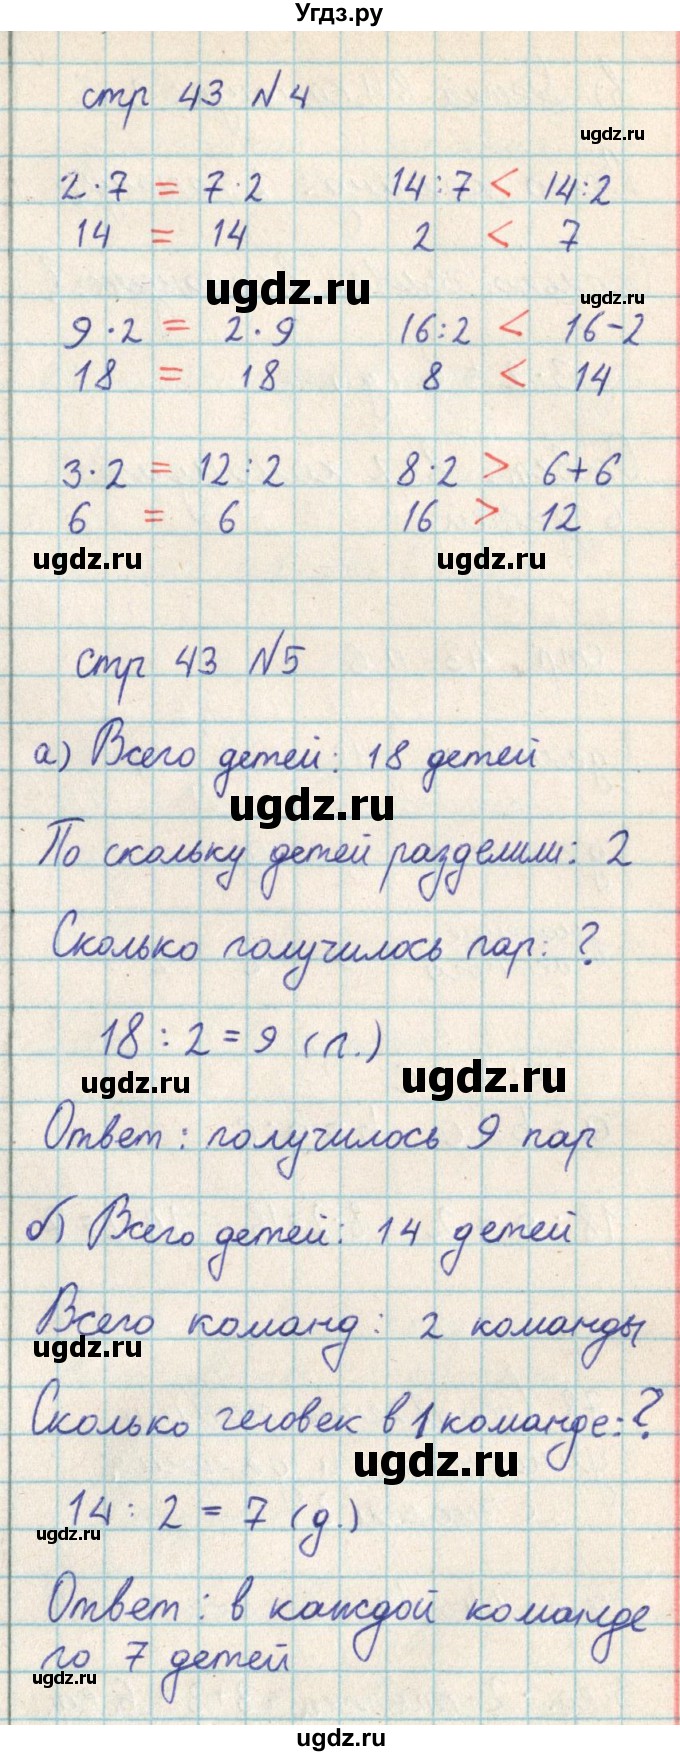 Угдз.ру
стр 43 №4
ugdz.ru
2·7 = 7·2 14:7 < 14:2
14 = 14 2 < 7
ugdz.ru ugdz.ru
9·2 = 2·9 16:2 < 16-2
18 = 18 8 < 14
3·2 = 12:2 8·2 > 6+6
6 = 6 16 > 12
ugdz.ru ugdz.ru
стр 43 №5
а) Всего детей: 18 детей
ugdz.ru
По скольку детей разделили: 2
Сколько получилось пар: ?
18 : 2 = 9 (п.)
ugdz.ru ugdz.ru
Ответ: получилось 9 пар
б) Всего детей: 14 детей
Всего команд: 2 команды
ugdz.ru
Сколько человек в 1 команде: ?
ugdz.ru
14 : 2 = 7 (д.)
ugdz.ru
Ответ: в каждой команде
по 7 детей
ugdz.ru
ugdz.ru